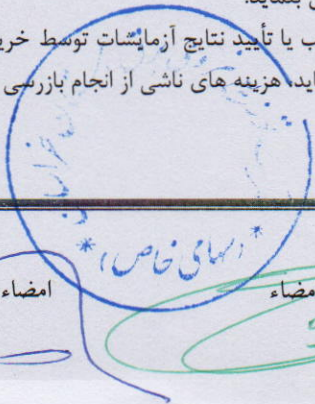 نماید.
ب یا تأیید نتایج آزمایشات توسط خری
اید. هزینه های ناشی از انجام بازرسی
* (سهامی خاص) *
امضاء
امضاء